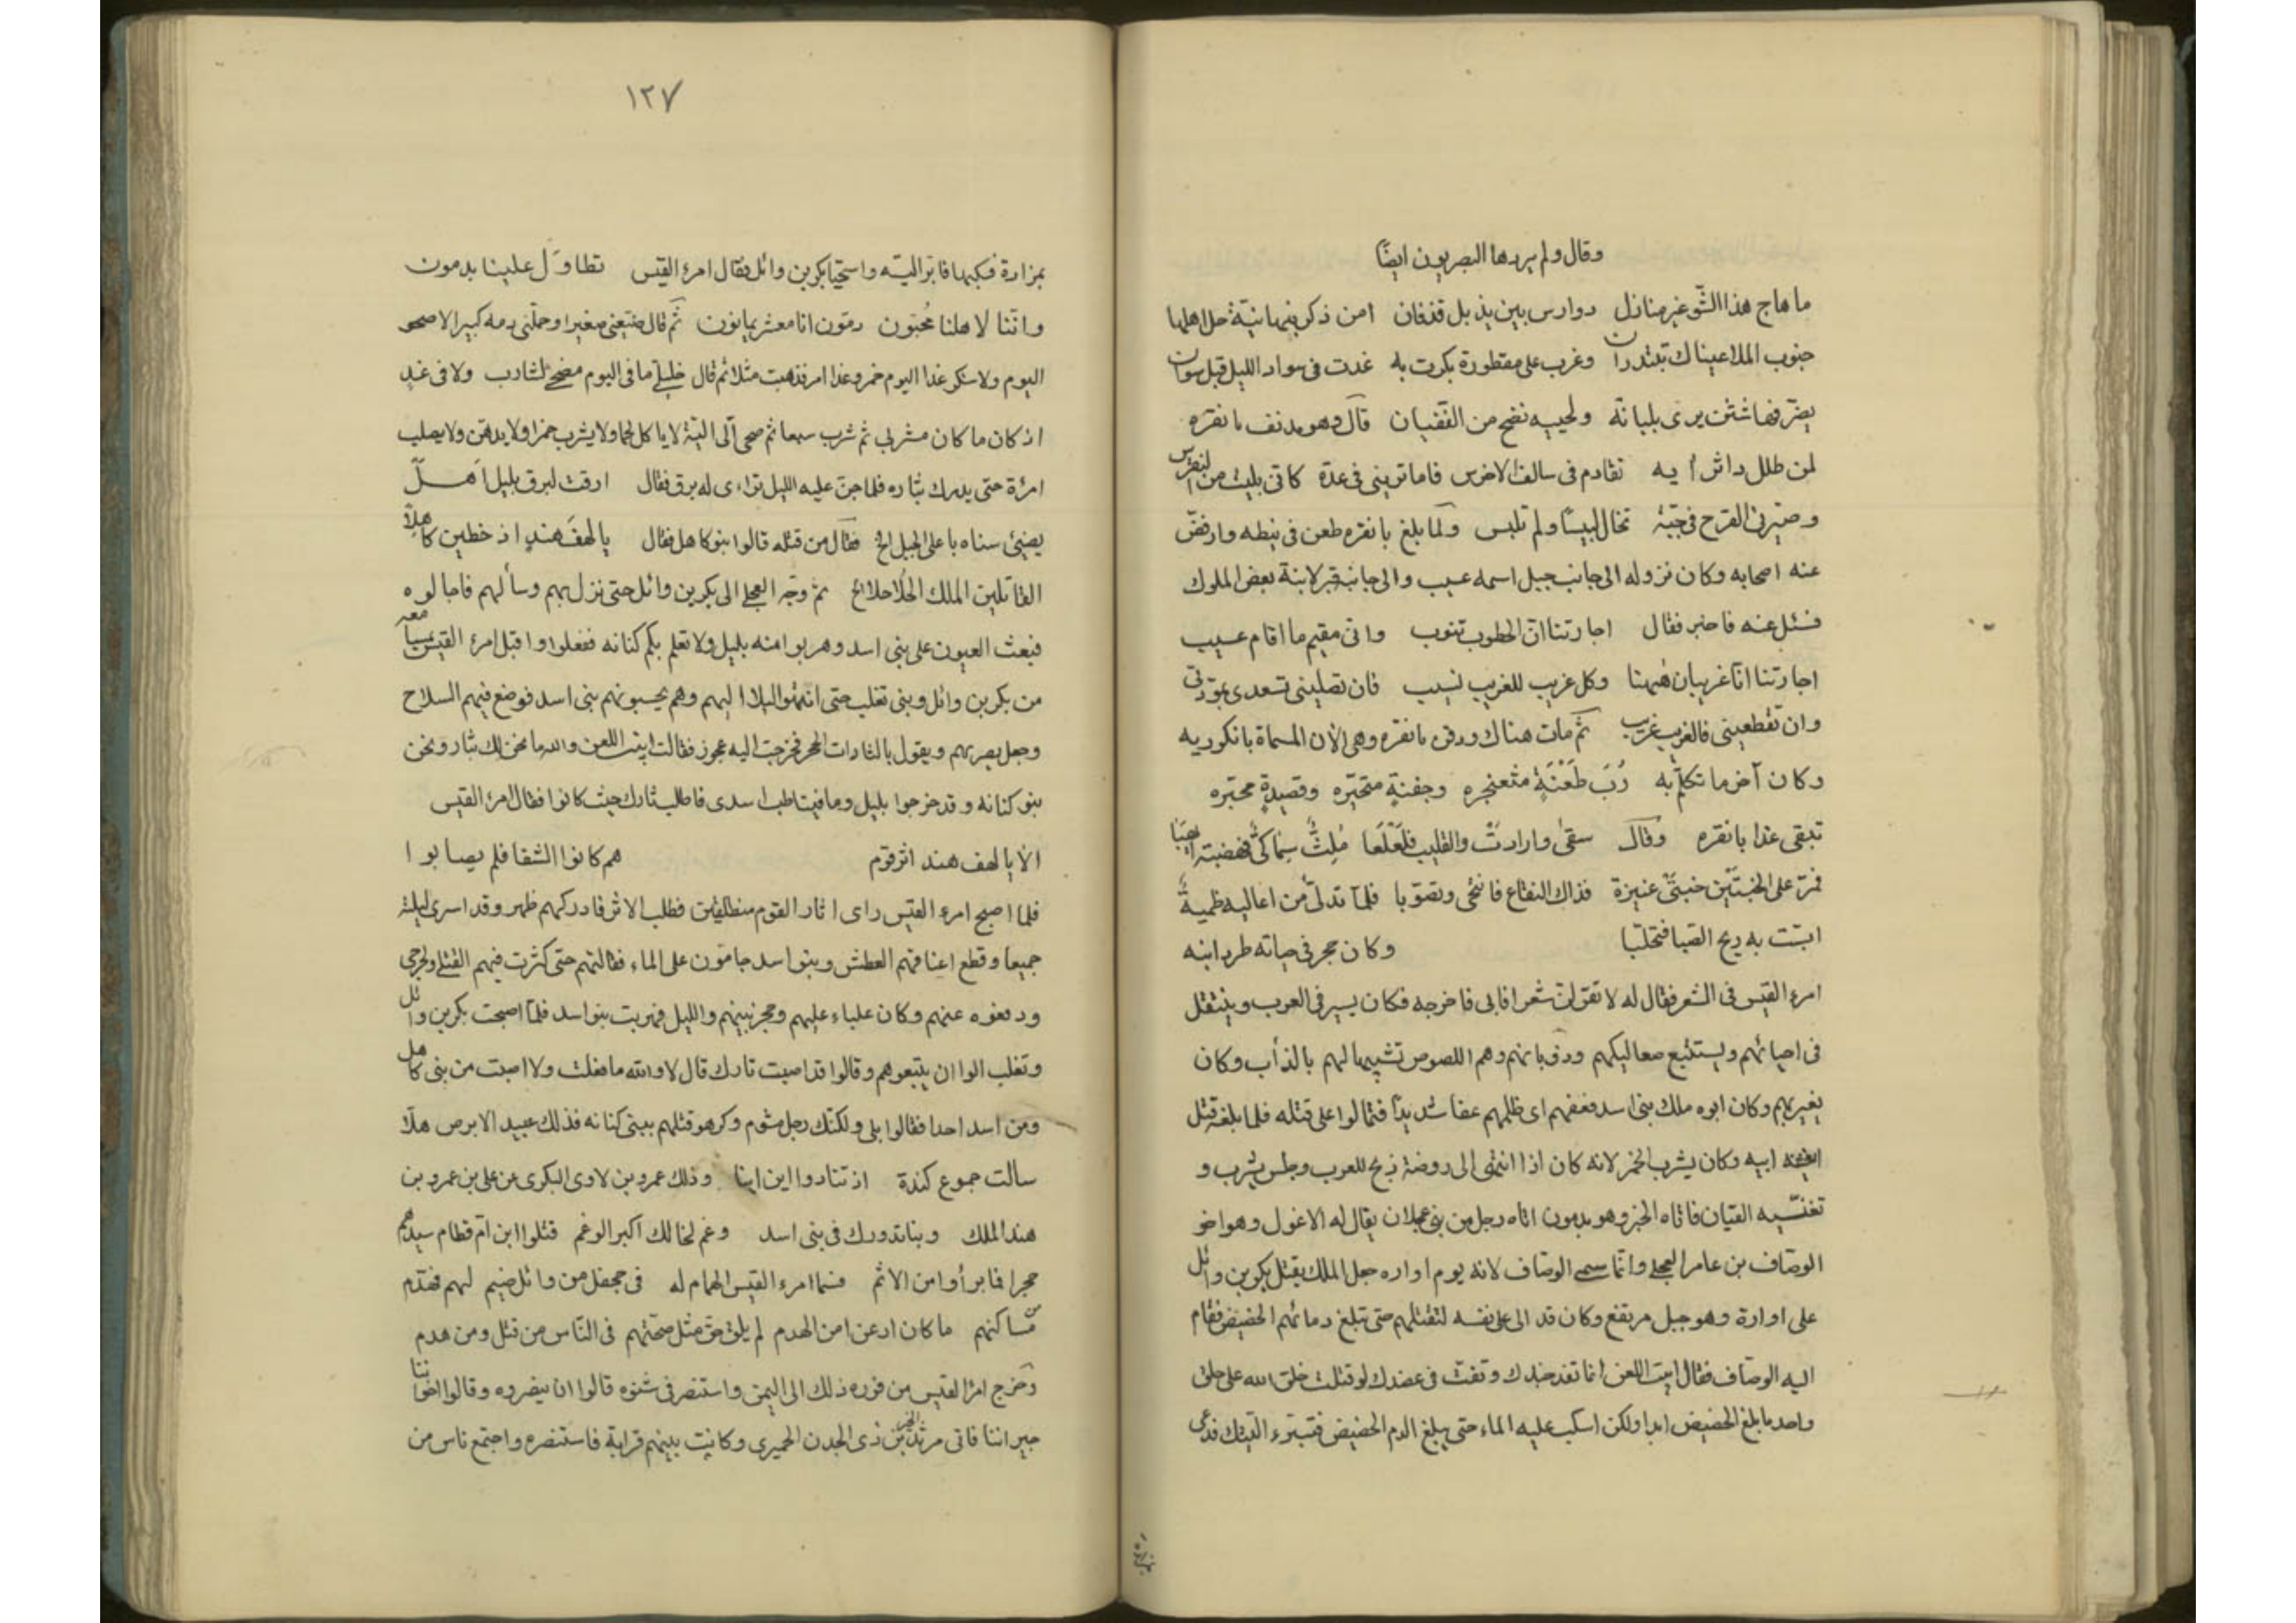 وقال ولم يردها البصريون ايضًا
ما هاج هذا الشّوغير منازل دوارس بين يذبل فذقان امن ذكر نبهانيّة حل اهلها
جنوب الملا عيناك تبتدران وغرب على مقطورة بكرت به غدت فى سواد الليل قبل سوان
يصرّفها شثن يرى بلبانه ولحييه نضح من النفيان قال وهو مدنف بانقره
لمن طلل داثر آيه تقادم فى سالف الاخرس فاما ترينى فى عدّة كانى بليت من النقرس
وصيّرنى القرح فى جبّة تخال لبيسًا ولم تلبس ولمّا بلغ بانقره طعن فى نبطه وارفضّ
عنه اصحابه وكان نزوله الى جانب جبل اسمه عسيب والى جانبه قبر لابنة بعض الملوك
فسئل عنه فاخبر فقال اجارتنا انّ الخطوب تنوب وانى مقيم ما اقام عسيب
اجارتنا انّا غريبان ههنا وكل غريب للغريب نسيب فان تصلينى تسعدى بمودّتى
وان تقطعينى فالغريب غريب ثمّ مات هناك ودفن بانقره وهى الان المسماة بانكوريه
وكان آخر ما تكلّم به رُبَ طَعْنَةٍ مثعنجره وجفنةٍ متحيّره وقصيدةٍ محبّره
تبقى غدا بانقره وقال سقى وارادتْ والقليب فلَعْلَعَا مُلِثٌّ سِمَاكىٌّ فهضبته ايهبا
فمرّ على الخبتَيْن خبتَىْ عنيزة فذاك النقاع فانتحى وتصوّبا فلمّا تدلّى من اعاليه طميةٌ
ابسّت به ريح الصبا فتحلبّا وكان حجر فى حياته طرد ابنه
امرء القيس فى الشعر فقال له لا تقولنّ شعرا فابى فاخرجه فكان يسير فى العرب وينتقل
فى احيائهم ويستتبع صعاليكهم وذؤبانهم وهم اللصوص تشبيها لهم بالذأب وكان
يغير بهم وكان ابوه ملك بنى اسد فعفهم اى ظلمهم عفا شديدًا فتمالوا على قتله فلما بلغه قتل
ابيه وكان يشرب الخمر لانه كان اذا انتهى الى روضة ذبح للعرب وجلس يشرب و
تغنّيه القيان فاتاه الخبر وهو بدمون اتاه رجل من بنى عجلان يقال له الاغول وهو اخو
الوصّاف بن عامر العجلى وانّما سمى الوصّاف لانه يوم اواره جل الملك يقتل بكر بن وائل
على اوارة وهو جبل مرتفع وكان قد الى على نفسه لتقتلهم حتى تبلغ دمائهم الحضيض فقام
اليه الوصّاف فقال ابيت اللعن انما تفد جندك وتفتّ فى عضدك لو قتلت خلق الله على حلق
واحد ما بلغ الحضيض ابدا ولكن اسكب عليه الماء حتى يبلغ الدم الحضيض فتبرء اليتك فدعى
بمزادة
١٢٧
بمزادة فكبها فابرّ اليته واستحيا بكر بن وائل فقال امرؤ القيس تطاول علينا بدمون
واننا لاهلنا مُحبّون دمّون انا معشر يمانون ثمّ قال ضيّعنى صغيرا وحمّلنى دمه كبيرا لا صحو
اليوم ولا سكر غدا اليوم خمر وغدا امر فذهبت مثلا ثم قال خليلى ما فى اليوم مضحى لشارب ولا فى غدٍ
اذ كان ما كان مشربى ثم شرب سبعا ثم صحى آلى اليّة لا ياكل لحما ولا يشرب خمرا ولا يدهن ولا يصيب
امرأة حتى يدرك بثاره فلما جنّ عليه الليل تراءى له برق فقال ارقت لبرق بليل اَهـلّ
يضيئ سناه باعلى الجبل الخ فقال من قتله قالوا بنو كاهل فقال يا لهفَ هندٍ اذ خطين كاهلاً
القاتلين الملك الحُلاحلا الخ ثم وجّه العجلى الى بكر بن وائل حتى نزل بهم وسألهم فاجابوه
فبعث العيون على بنى اسد وهربوا منه بليل ولا تعلم بكم كنانه ففعلوا واقبل امرؤ القيس معه
من بكر بن وائل وبنى تغلب حتى انتهوا ليلا اليهم وهم يحسبونهم بنى اسد فوضع فيهم السلاح
وجعل يضربهم ويقول يالثارات الحجر فخرجت اليه عجوز فقالت ابيت اللعن والله ما نحن لك بثار ونحن
بنو كنانه وقد خرجوا بليل وما فينا اسدى فاطلب ثارك حيث كانوا فقال امرؤ القيس
الا يا لهف هند اثر قوم هم كانوا الشفا فلم يصابوا
فلما اصبح امرء القيس راى اثار القوم منطلقين فطلب الاثر فادركهم ظهر وقد اسرى ليلته
جميعا وقطع اعناقهم العطش وبنو اسد جامّون على الماء فقاتلهم حتى كثرت فيهم القتلى والجرحى
ودفعوه عنهم وكان علباء عليهم وحجز بينهم والليل فهربت بنو اسد فلمّا اصبحت بكر بن وائل
وتغلب ابوا ان يتبعوهم وقالوا قد اصبت ثارك قال لا والله ما فعلت ولا اصبت من بنى كاهل
ومن اسد احدا فقالوا بلى ولكنّك رجل مشوم وكرهو قتلهم بنى كنانه فذلك عبيد الابرص هلّا
سالت جموع كندة اذ تنادوا اين اينا وذلك عمرو بن لاوى البكرى عن على بن عمرو بن
هند الملك وبناتدورك فى بنى اسد وغم لخالك اكبر الوغم قتلوا ابن ام قطام سيدهم
حجرا فما برأوا من الاثم فسما امرء القيس الهمام له فى جحفل من وائل ضيم لهم فقدم
مساكنهم ما كان ادعن امن الهدم لم يلق حىّ مثل صبحتهم فى النّاس من قتل ومن هدم
وخرج امرؤ القيس من فوره ذلك الى اليمن واستنصر فى شنوه قالوا ان ينصروه وقالوا اخواننا
جيراننا فاتى مرثد الخير بن ذى الجدن الحميرى وكانت بينهم قرابة فاستنصره واجتمع ناس من